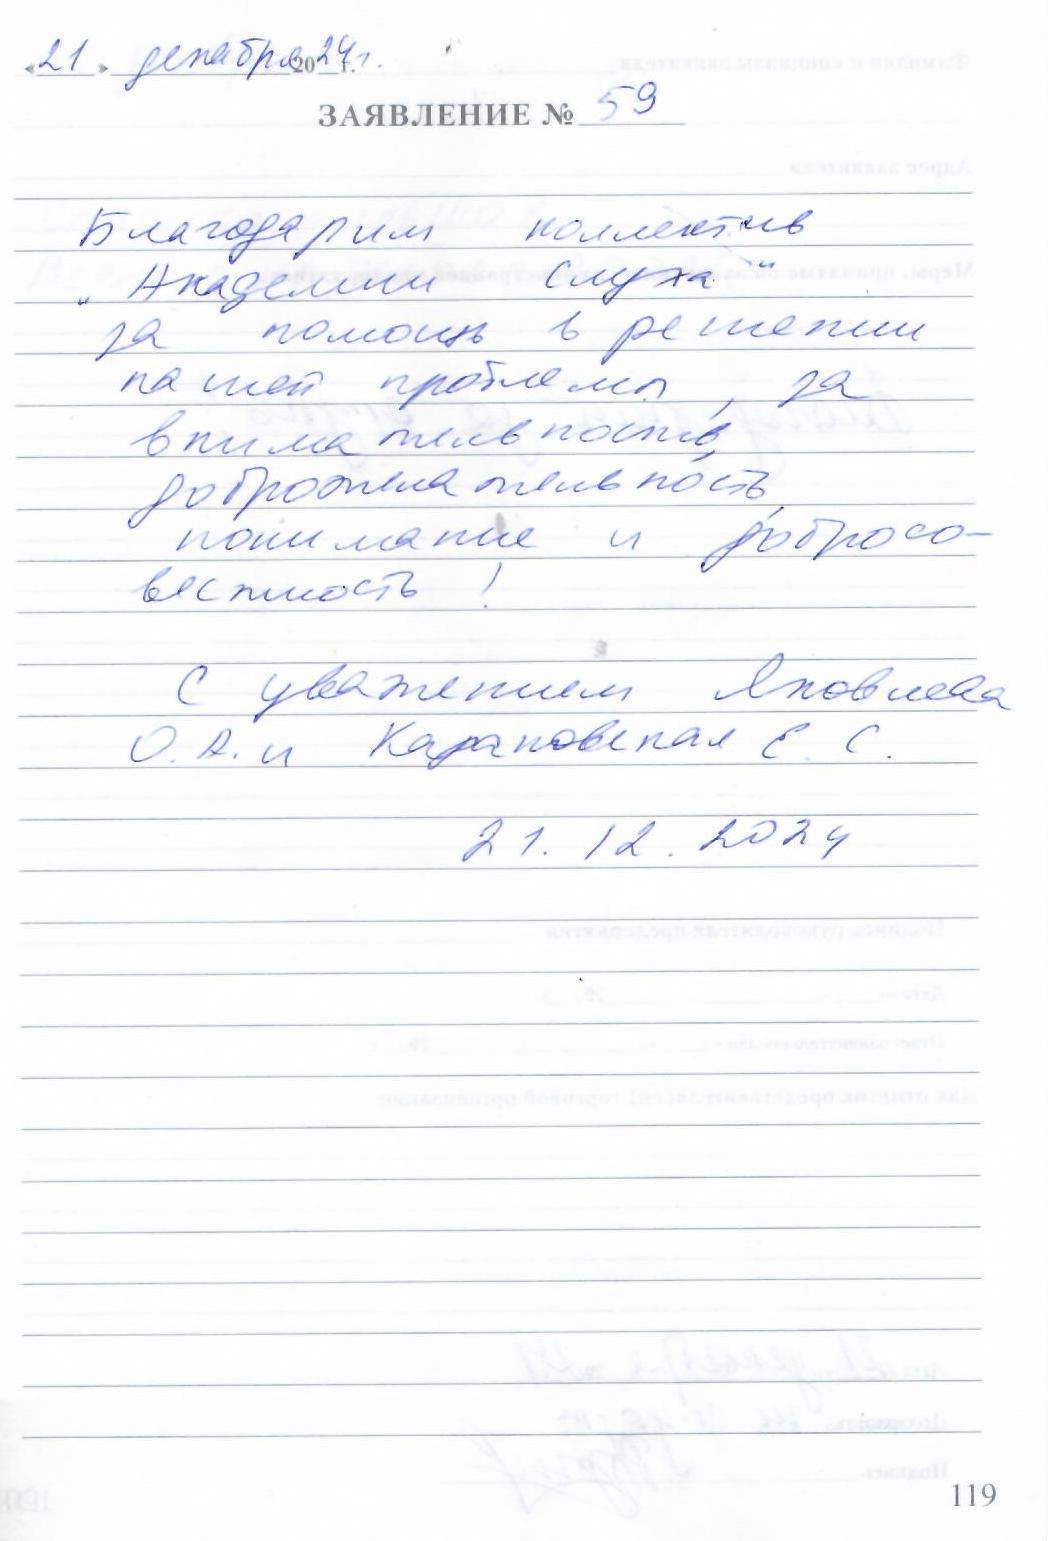 «21» декабря 2024 г.
ЗАЯВЛЕНИЕ № 59
Благодарим коллектив
„Академии Слуха"
за помощь в решении
нашей проблемы, за
внимательность,
доброжелательность,
понимание и добросо-
вестность!
С уважением Яковлева
О.А. и Карановская Е.С.
21.12.2024
119